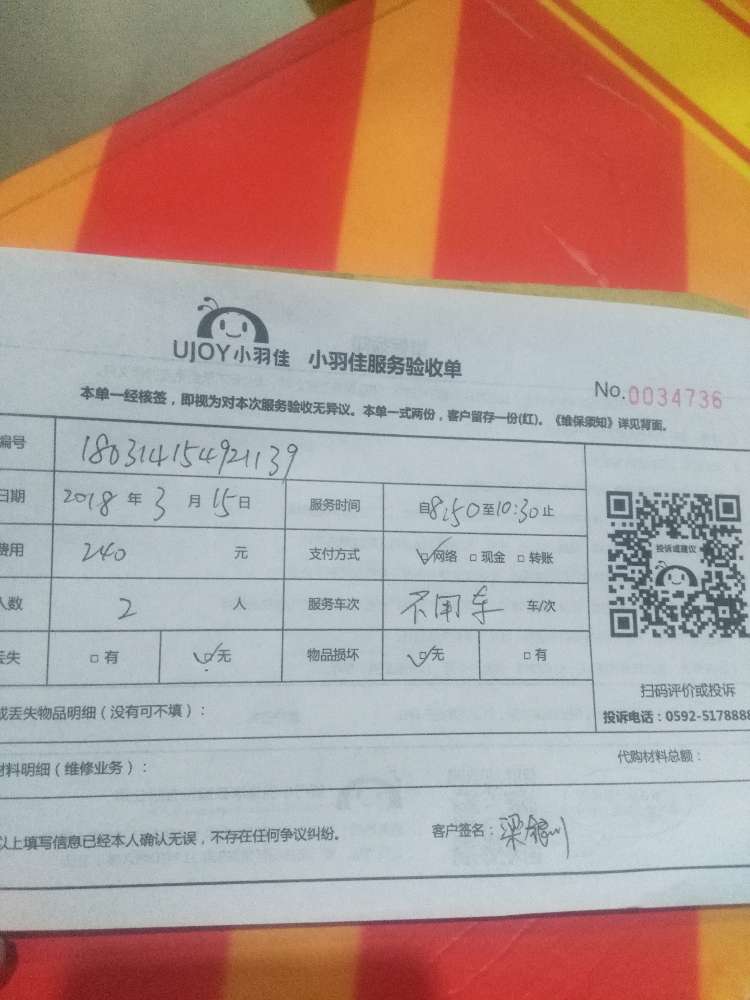 UJOY小羽佳 小羽佳服务验收单
No.0034736
本单一经核签，即视为对本次服务验收无异议。本单一式两份，客户留存一份(红)。《维保须知》详见背面。
编号 180314154921139
日期 2018 年 3 月 15 日 服务时间 自8:50至10:30止
费用 240 元 支付方式 ☑网络 □现金 □转账
人数 2 人 服务车次 不用车 车/次
丢失 □有 ☑无 物品损坏 ☑无 □有
投诉或建议
扫码评价或投诉
投诉电话：0592-5178888
或丢失物品明细（没有可不填）：
材料明细（维修业务）： 代购材料总额：
以上填写信息已经本人确认无误，不存在任何争议纠纷。 客户签名：梁